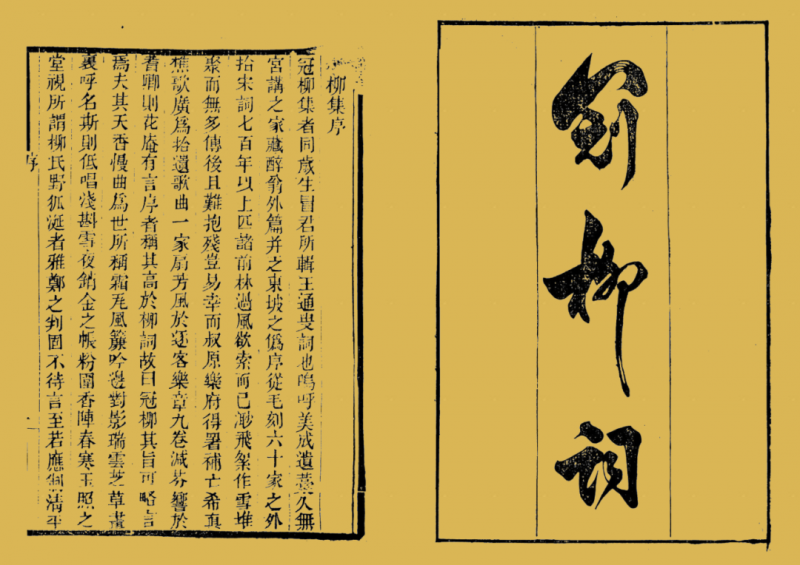 冠柳詞
柳集序
冠柳集者同歲生冒君所輯王通叟詞也嗚呼美成遺藁久無
宮講之家藏醉翁外篇并之東坡之僞序從毛刻六十家之外
拾宋詞七百年以上匹諸前林過風欲索而已渺飛絮作雪堆
聚而無多傳後且難抱殘豈易幸而叔原樂府得署補亡希真
樵歌廣爲拾遺歌曲一家扇芳風於逐客樂章九卷減芬響於
耆卿則花庵有言序者稱其高於柳詞故曰冠柳其旨可略言
焉夫其天香慢曲爲世所稱霜瓦風簾吟邊對影瑞雲芝草畫
裏呼名斯則低唱淺斟雪夜銷金之帳粉圍香陣春寒玉照之
堂視所謂柳氏野狐涎者雅鄭之判固不待言至若應制清平
序
一